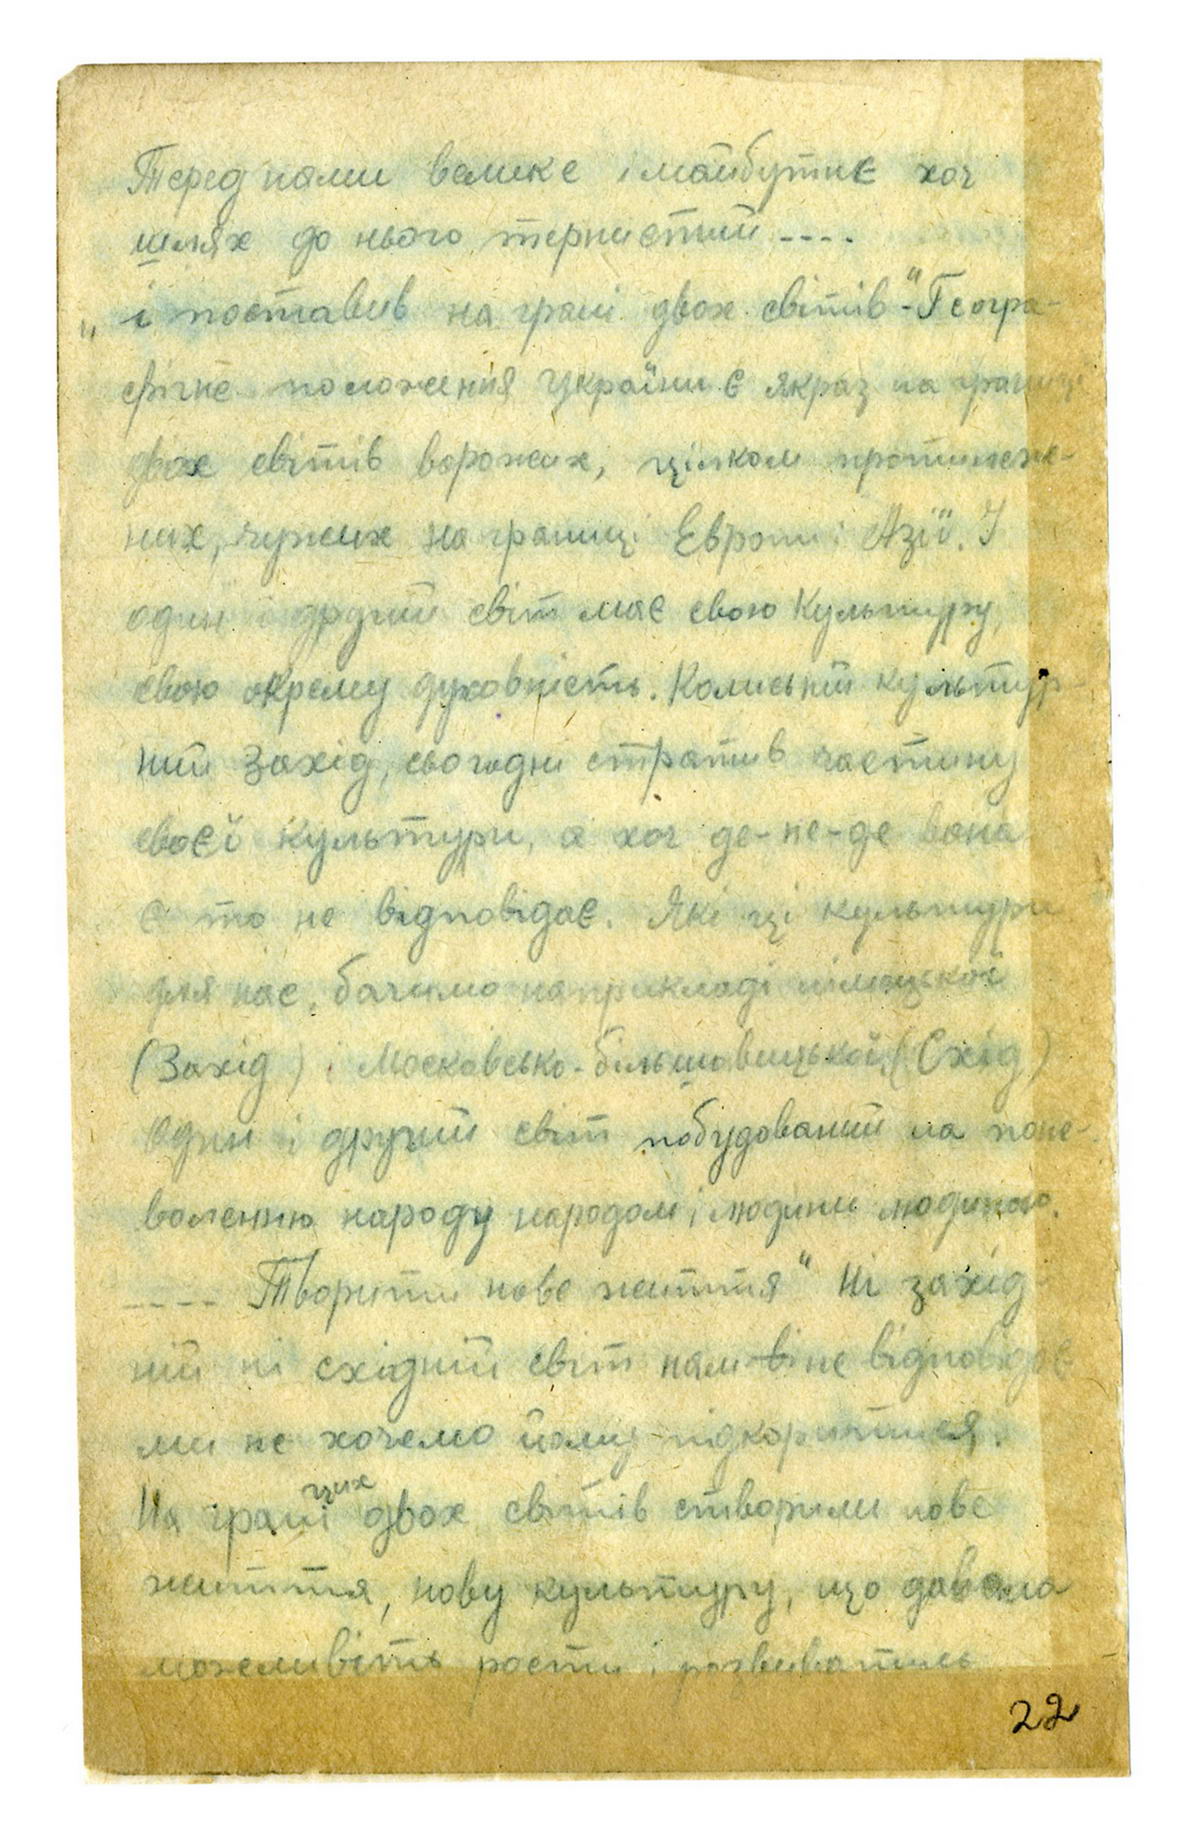 Перед нами велике і майбутнє хоч
шлях до нього тернистий ----
„ і поставив на грані двох світів"- Геогра-
фічне положення України є якраз на границі
двох світів ворожих, цілком протилеж-
них, чужих на границі Европи і Азії. І
один і другий світ має свою культуру,
свою окрему духовність. Колиській культур-
ний Захід, сьогодні стратив частину
своєї культури, а хоч де-не-де вона
є то не відповідає. Які ці культури
для нас, бачимо на прикладі німецької
(Захід) і московсько-більшовицької (Схід)
Один і другий світ побудований на поне-
воленню народу народом і людини людиною.
---- Творити нове життя" Ні захід-
ній ні східній світ нам ві не відповідає
ми не хочемо йому підкоритися.
На грані цих двох світів створили нове
життя, нову культуру, що давала
можливість рости і розвиватись
22